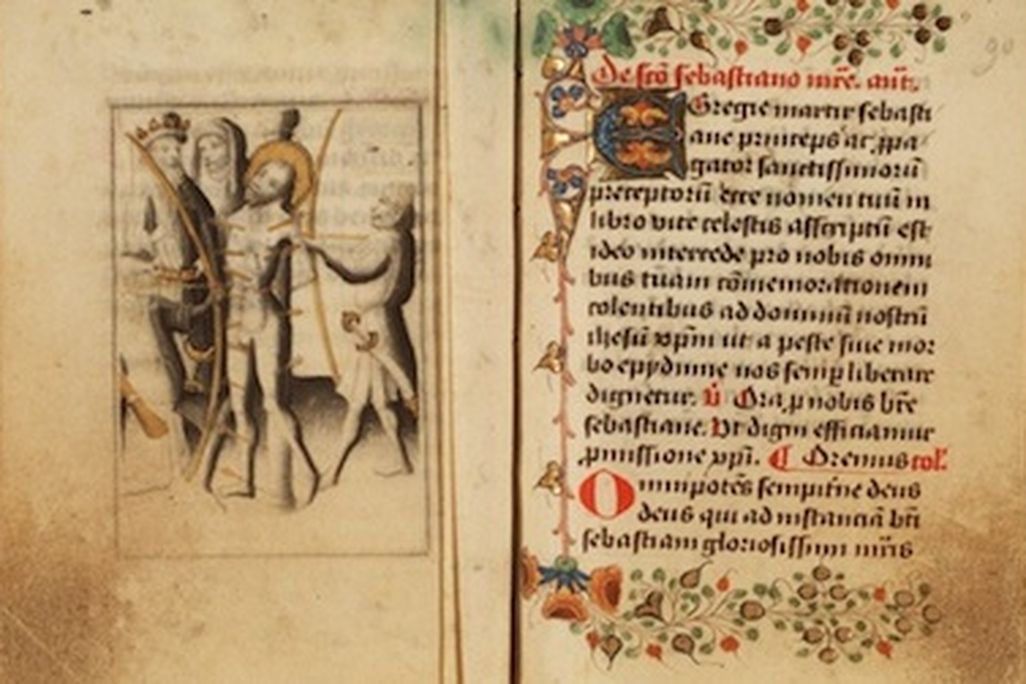 De sctō sebastiano mr̄e. ant.
Egregie martir sebasti
ane princeps at ꝓpa
gator sanctissimorū
preceptorū ecce nomen tuū in
libro vite celestis asscriptū est
ideo intercede pro nobis omni
bus tuam cōmemorationem
colentibus ad dominū nostrū
ihesū xp̄m ut a peste siue mor
bo epydimie nos semꝑ liberare
dignetur. v̄ Ora ꝓ nobis btē
sebastiane. Vt digni efficiamur
ꝓmissione xp̄i. Oremus col̄.
Omnipotēs sempitͤne deus
deus qui ad instanciā btī
sebastiani gloriosissimi mr̄is
90